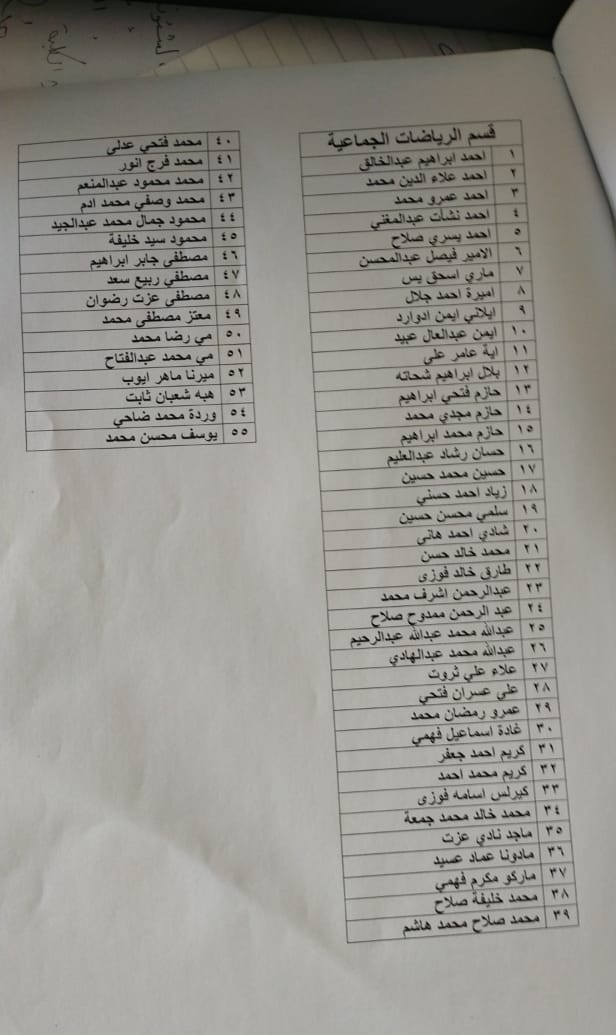 قسم الرياضات الجماعية
١ احمد ابراهيم عبدالخالق
٢ احمد علاء الدين محمد
٣ احمد عمرو محمد
٤ احمد نشأت عبدالمغني
٥ احمد يسري صلاح
٦ الامير فيصل عبدالمحسن
٧ ماري اسحق يس
٨ اميرة احمد جلال
٩ ايلاني ايمن ادوارد
١٠ ايمن عبدالعال عبيد
١١ اية عامر على
١٢ بلال ابراهيم شحاته
١٣ حازم فتحي ابراهيم
١٤ حازم مجدي محمد
١٥ حازم محمد ابراهيم
١٦ حسان رشاد عبدالعليم
١٧ حسين محمد حسين
١٨ زياد احمد حسني
١٩ سلمي محسن حسين
٢٠ شادي احمد هاني
٢١ محمد خالد حسن
٢٢ طارق خالد فوزى
٢٣ عبدالرحمن اشرف محمد
٢٤ عبد الرحمن ممدوح صلاح
٢٥ عبدالله محمد عبدالله عبدالرحيم
٢٦ عبدالله محمد عبدالهادي
٢٧ علاء علي ثروت
٢٨ علي عسران فتحي
٢٩ عمرو رمضان محمد
٣٠ غادة اسماعيل فهمي
٣١ كريم احمد جعفر
٣٢ كريم محمد احمد
٣٣ كيرلس اسامه فوزى
٣٤ محمد خالد محمد جمعة
٣٥ ماجد نادي عزت
٣٦ مادونا عماد عسيد
٣٧ ماركو مكرم فهمي
٣٨ محمد خليفة صلاح
٣٩ محمد صلاح محمد هاشم
٤٠ محمد فتحي عدلي
٤١ محمد فرج انور
٤٢ محمد محمود عبدالمنعم
٤٣ محمد وصفي محمد ادم
٤٤ محمود جمال محمد عبدالجيد
٤٥ محمود سيد خليفة
٤٦ مصطفى جابر ابراهيم
٤٧ مصطفي ربيع سعد
٤٨ مصطفى عزت رضوان
٤٩ معتز مصطفى محمد
٥٠ مي رضا محمد
٥١ مي محمد عبدالفتاح
٥٢ ميرنا ماهر ايوب
٥٣ هبه شعبان ثابت
٥٤ وردة محمد ضاحي
٥٥ يوسف محسن محمد